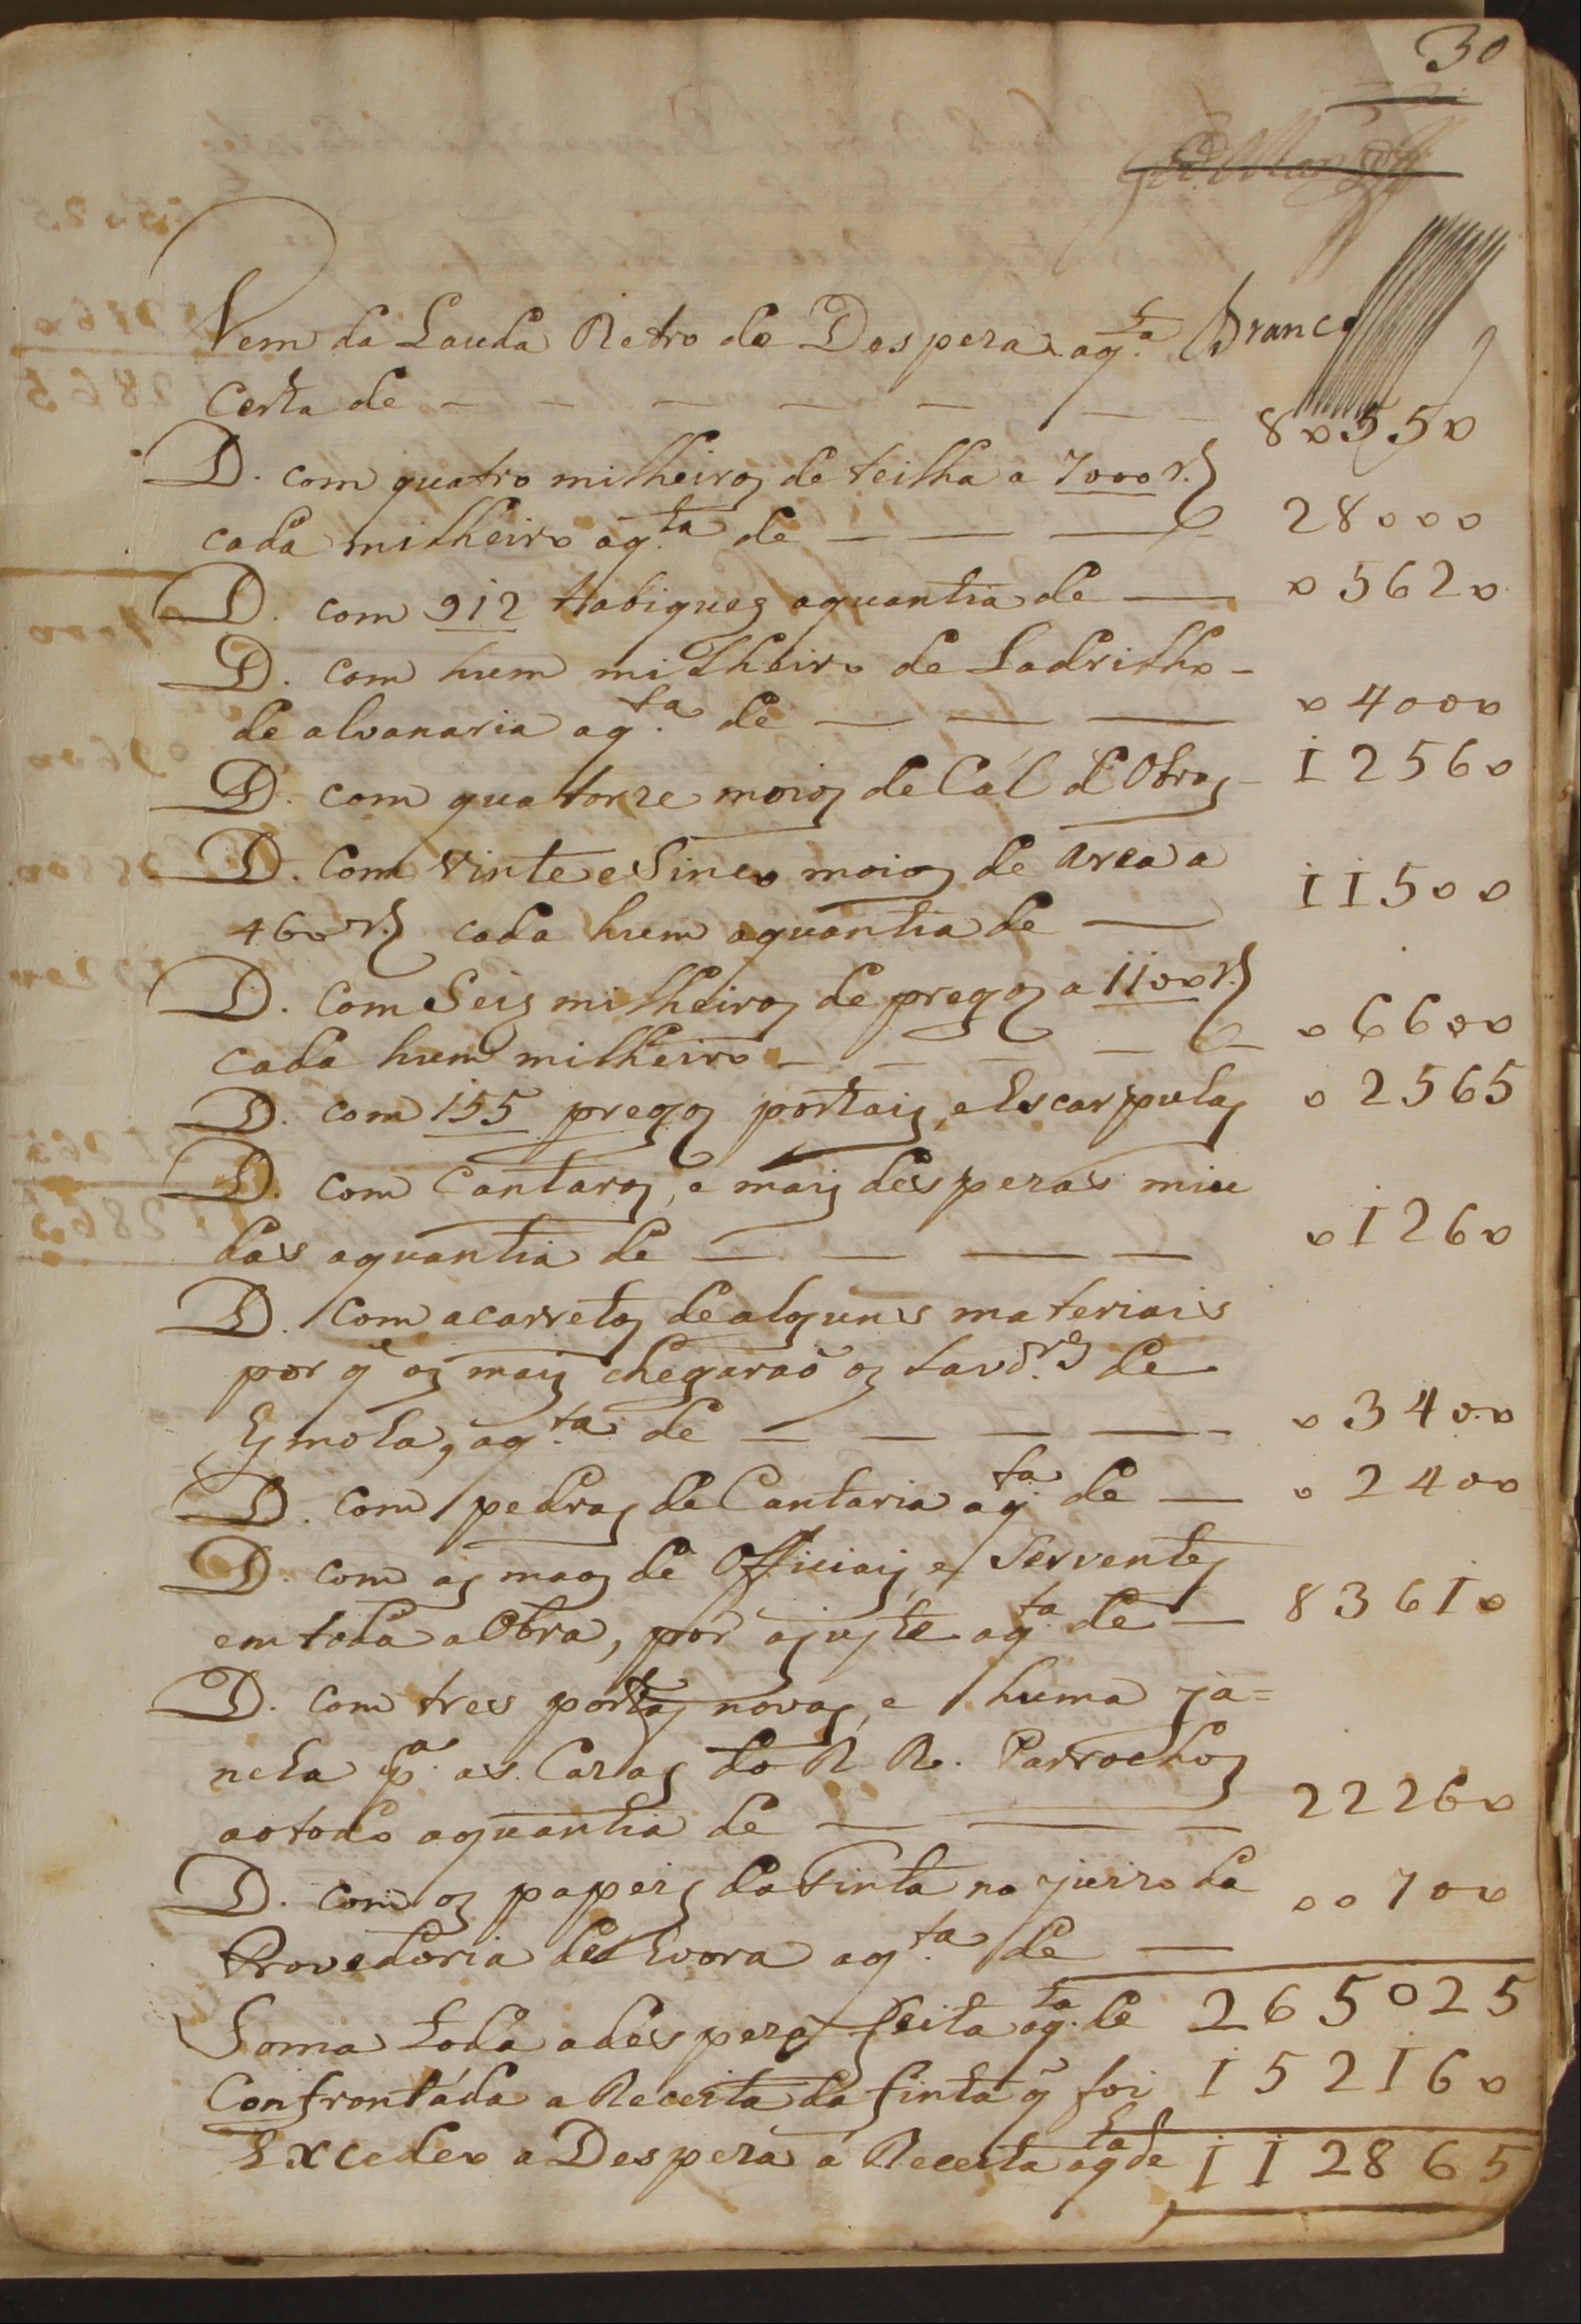 30
Vem da Lauda Retro de Despeza aq.ta Branco
Certa de — — — — — — — 80550
D. com quatro milheiros de teilha a 7000 rs
cada milheiro aq.ta de — — — 28000
D. com 912 tabiques aquantia de — 05620
D. com hum milheiro de Ladrilho -
de alvanaria aq.ta de — — — 04000
D. com quatorze moios de Cál d Obras - 12560
D. Com vinte e Sinco moios de area a
460 rs cada hum aquantia de — 11500
D. Com Seis milheiros de pregos a 1100 rs
cada hum milheiro — — — — 06600
D. com 155 pregos portais, e Escarpulas 02565
D. com Cantaros, e mais despezas miu
das aquantia de — — — — 01260
D. Com acarretos de alguns materiais
por q̃ os mais chegaraõ os lavd.res de
Esmola, aq.ta de — — — — - 03400
D. com pedras de Cantaria aq.ta de — 02400
D. com as maos de Officiais, e Serventes
em toda a Obra, por ajuste aq.ta de — 83610
D. com tres portas novas, e huma ja=
nela p.a as Cazas do R R. Parrochos
aotodo aquantia de — — — 22260
D. com os papeis da Finta no juizo da 00700
Provedoria de Evora aq.ta de —
Soma toda a despeza feita aq.ta de 265025
Confrontáda a Receita da finta q̃ foi 152160
Excedeo a Despeza á Receita aq.ta de 112865